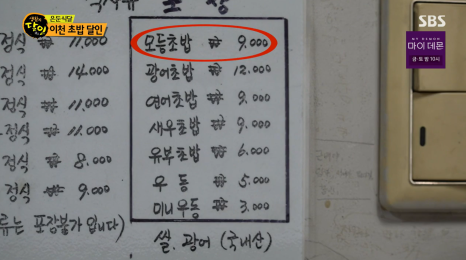 생활의 달인
은둔 식당
이천 초밥 달인
SBS
MY DEMON
마이 데몬
금·토 밤 10시
포장
정식 ₩ 11.000
정식 ₩ 14.000
정식 ₩ 11.000
정식 ₩ 11.000
정식 ₩ 8.000
정식 ₩ 9.000
류는 포장불가 입니다)
모듬초밥 ₩ 9.000
광어초밥 ₩ 12.000
연어초밥 ₩ 9.000
새우초밥 ₩ 9.000
유부초밥 ₩ 6.000
우동 ₩ 5.000
미니우동 ₩ 3.000
쌀. 광어 (국내산)